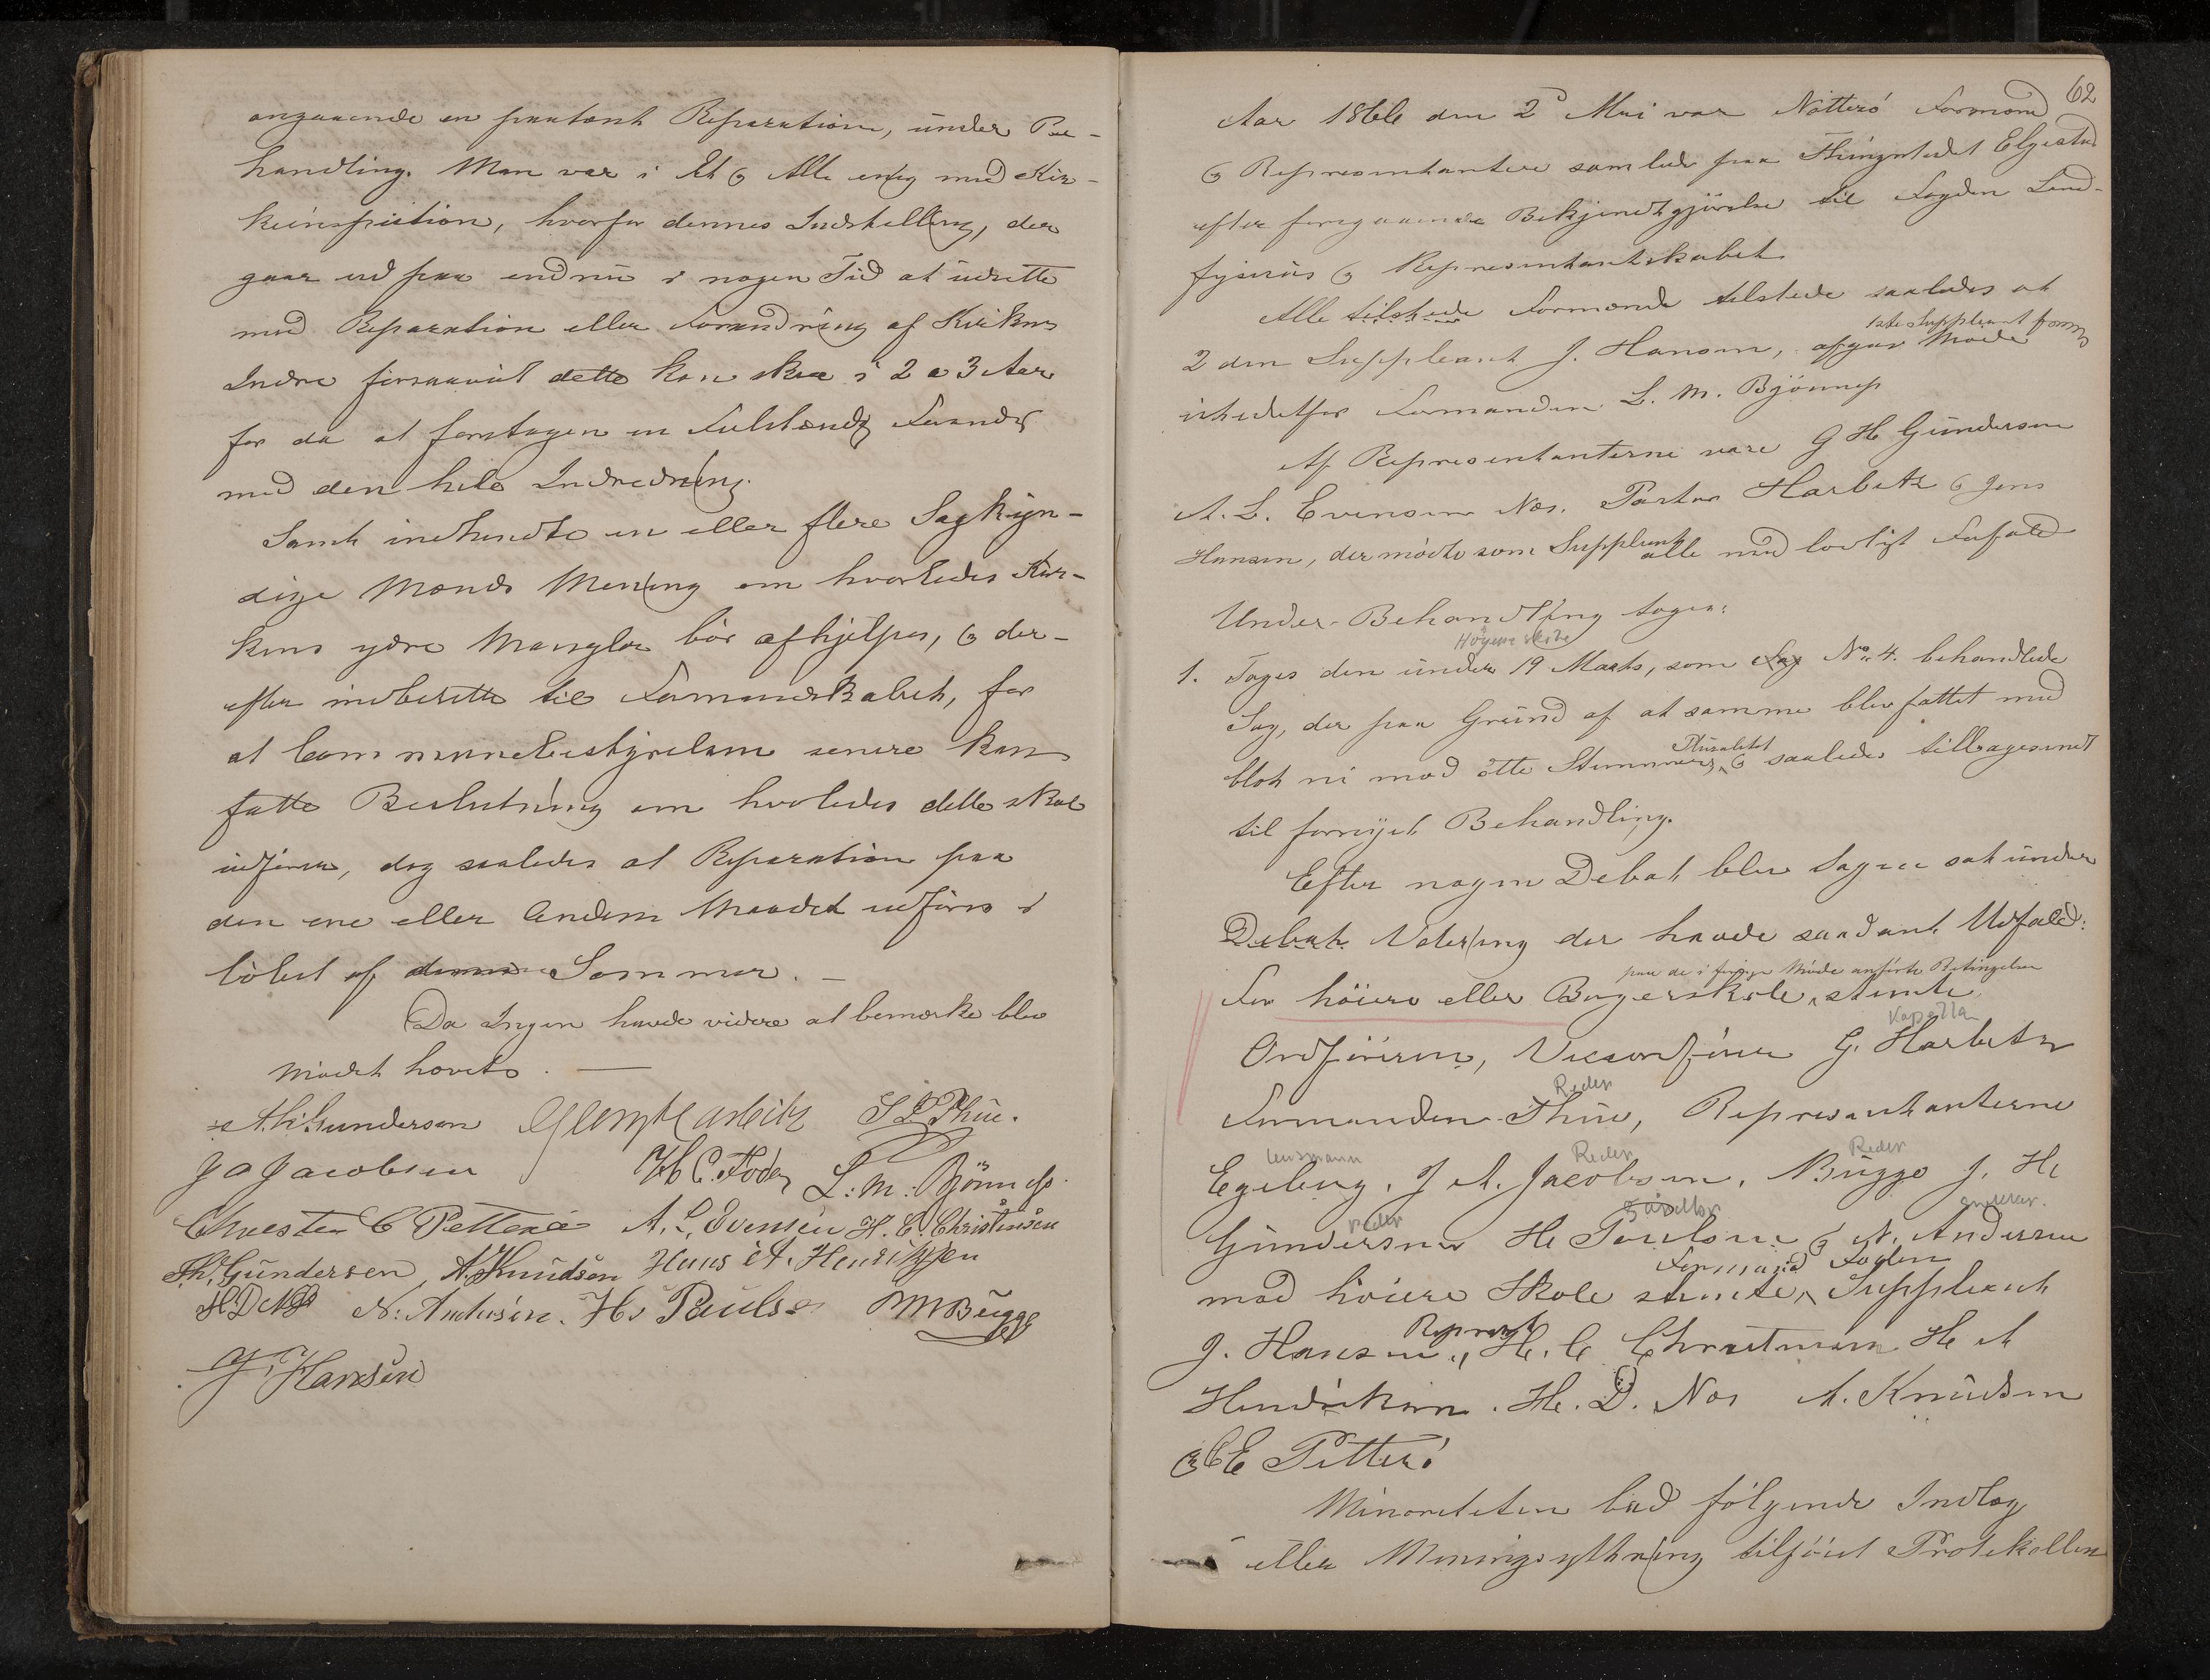 angaaende en paatænkt Reparation, under Be-
handling. Man var i Et og Alt enig med Kir-
keinspektion, hvorfor dennes Indstilling, der
gaar ud paa endnu i nogen Tid at udsætte
med Reparation eller Forandring af Kirkens
Indre forsaavidt dette kan skee i 2 a 3 Aar
for da at foretagen en Fulstændig Forandr
med den hele Indredning.
Samt indhendte en eller flere Sagkyn-
dige Mænds Mening om hvorledes Kir-
kens ydre Mangler bør afhjelpes, og der-
efter indberette til Formandskabet, for
at Communebestyrelsen senere kan
fatte Beslutning om hvoledes dette skal
udføres, dog saaledes at Reparation paa
den ene eller Anden Maade udføres i
løbet af denne Sommer. —
Da Ingen havde videre at bemærke blev
Mødet hævet. —
A.H. Gundersen Georg Harbitz S L Thue.
J A Jacobsen H C Foder L: M: Bjønnes.
Chresten C Petterøe A. L. Evensen H. C. Christensen
Th. Gundersen, A. Knudsen Hans A. Henriksen
H. D. Næs N: Andersen. Hs Paulsen M Bugge
J. Hansen
62
Aar 1866 den 2d Mai var Nøtterø Formænd
og Repræsentantere samlede paa Thingstedet Elgestad
efter foregaaende Bekjendtgjørelse til Fogden Land-
fysicus og Representantskabet
Alle tilstede Formænd tilstede saaledes at
1ste Suppleant form
2 den Suppleant J. Hansen, afgav Møde
istedetfor Formanden L. M. Bjønnes
Af Representanterne vare G H Gundersen
A. L. Evensen Næs. Pastor Harbitz og Jens
Hansen, der mødte som Suppleant alle med lovligt Forfald
Under Behandling toges:
Høyere skole
1. Toges den under 19 Marts, som Sag No. 4. behandlede
Sag, der paa Grund af at samme blev fattet med
Pluralitet
blot ni mod otte Stemmers, og saaledes tilbagesendt
til fornyet Behandling.
Efter nogen Debat blev Sagen sat under
Debat. Votering der havde saadant Udfald:
paa de i forrige Møde anførte Betingelser
For høiere eller Borgerskole, stemte
Kapellan
Ordføreren, Viceordfører G. Harbitz
Reder
Formanden Thue, Repræsentanterne
lensmann Reder Reder
Egeberg, J A. Jacobsen, Bugge J. H.
reder
Gundersen H. Poulsen og N. Andersen
Formand Foden
mod høiere Skole stemte, Suppleant
Repræsent
J. Hansen, H. C Christensen H A
Hendriksen. H. D. Næs A. Knudsen
og C E Petterø
Minoriteten bad følgende Indlæg
eller Meningsyttring tilføiet Protokollen